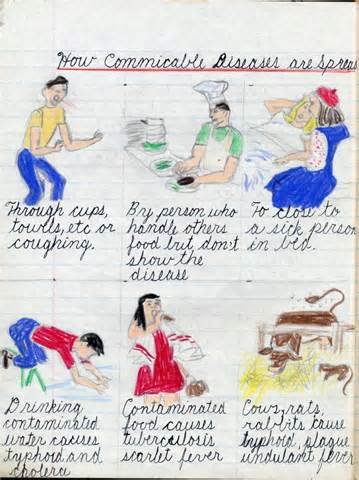 How Commicable Diseases are Spread
Through cups,
towels, etc or
coughing.
By person who
handle others
food but don't
show the
disease
To close to
a sick person
in bed.
Drinking
contaminated
water causes
typhoid and
cholera
Contaminated
food causes
tuberculosis
scarlet fever
Cows, rats,
rabbits cause
typhoid, plague
undulant fever